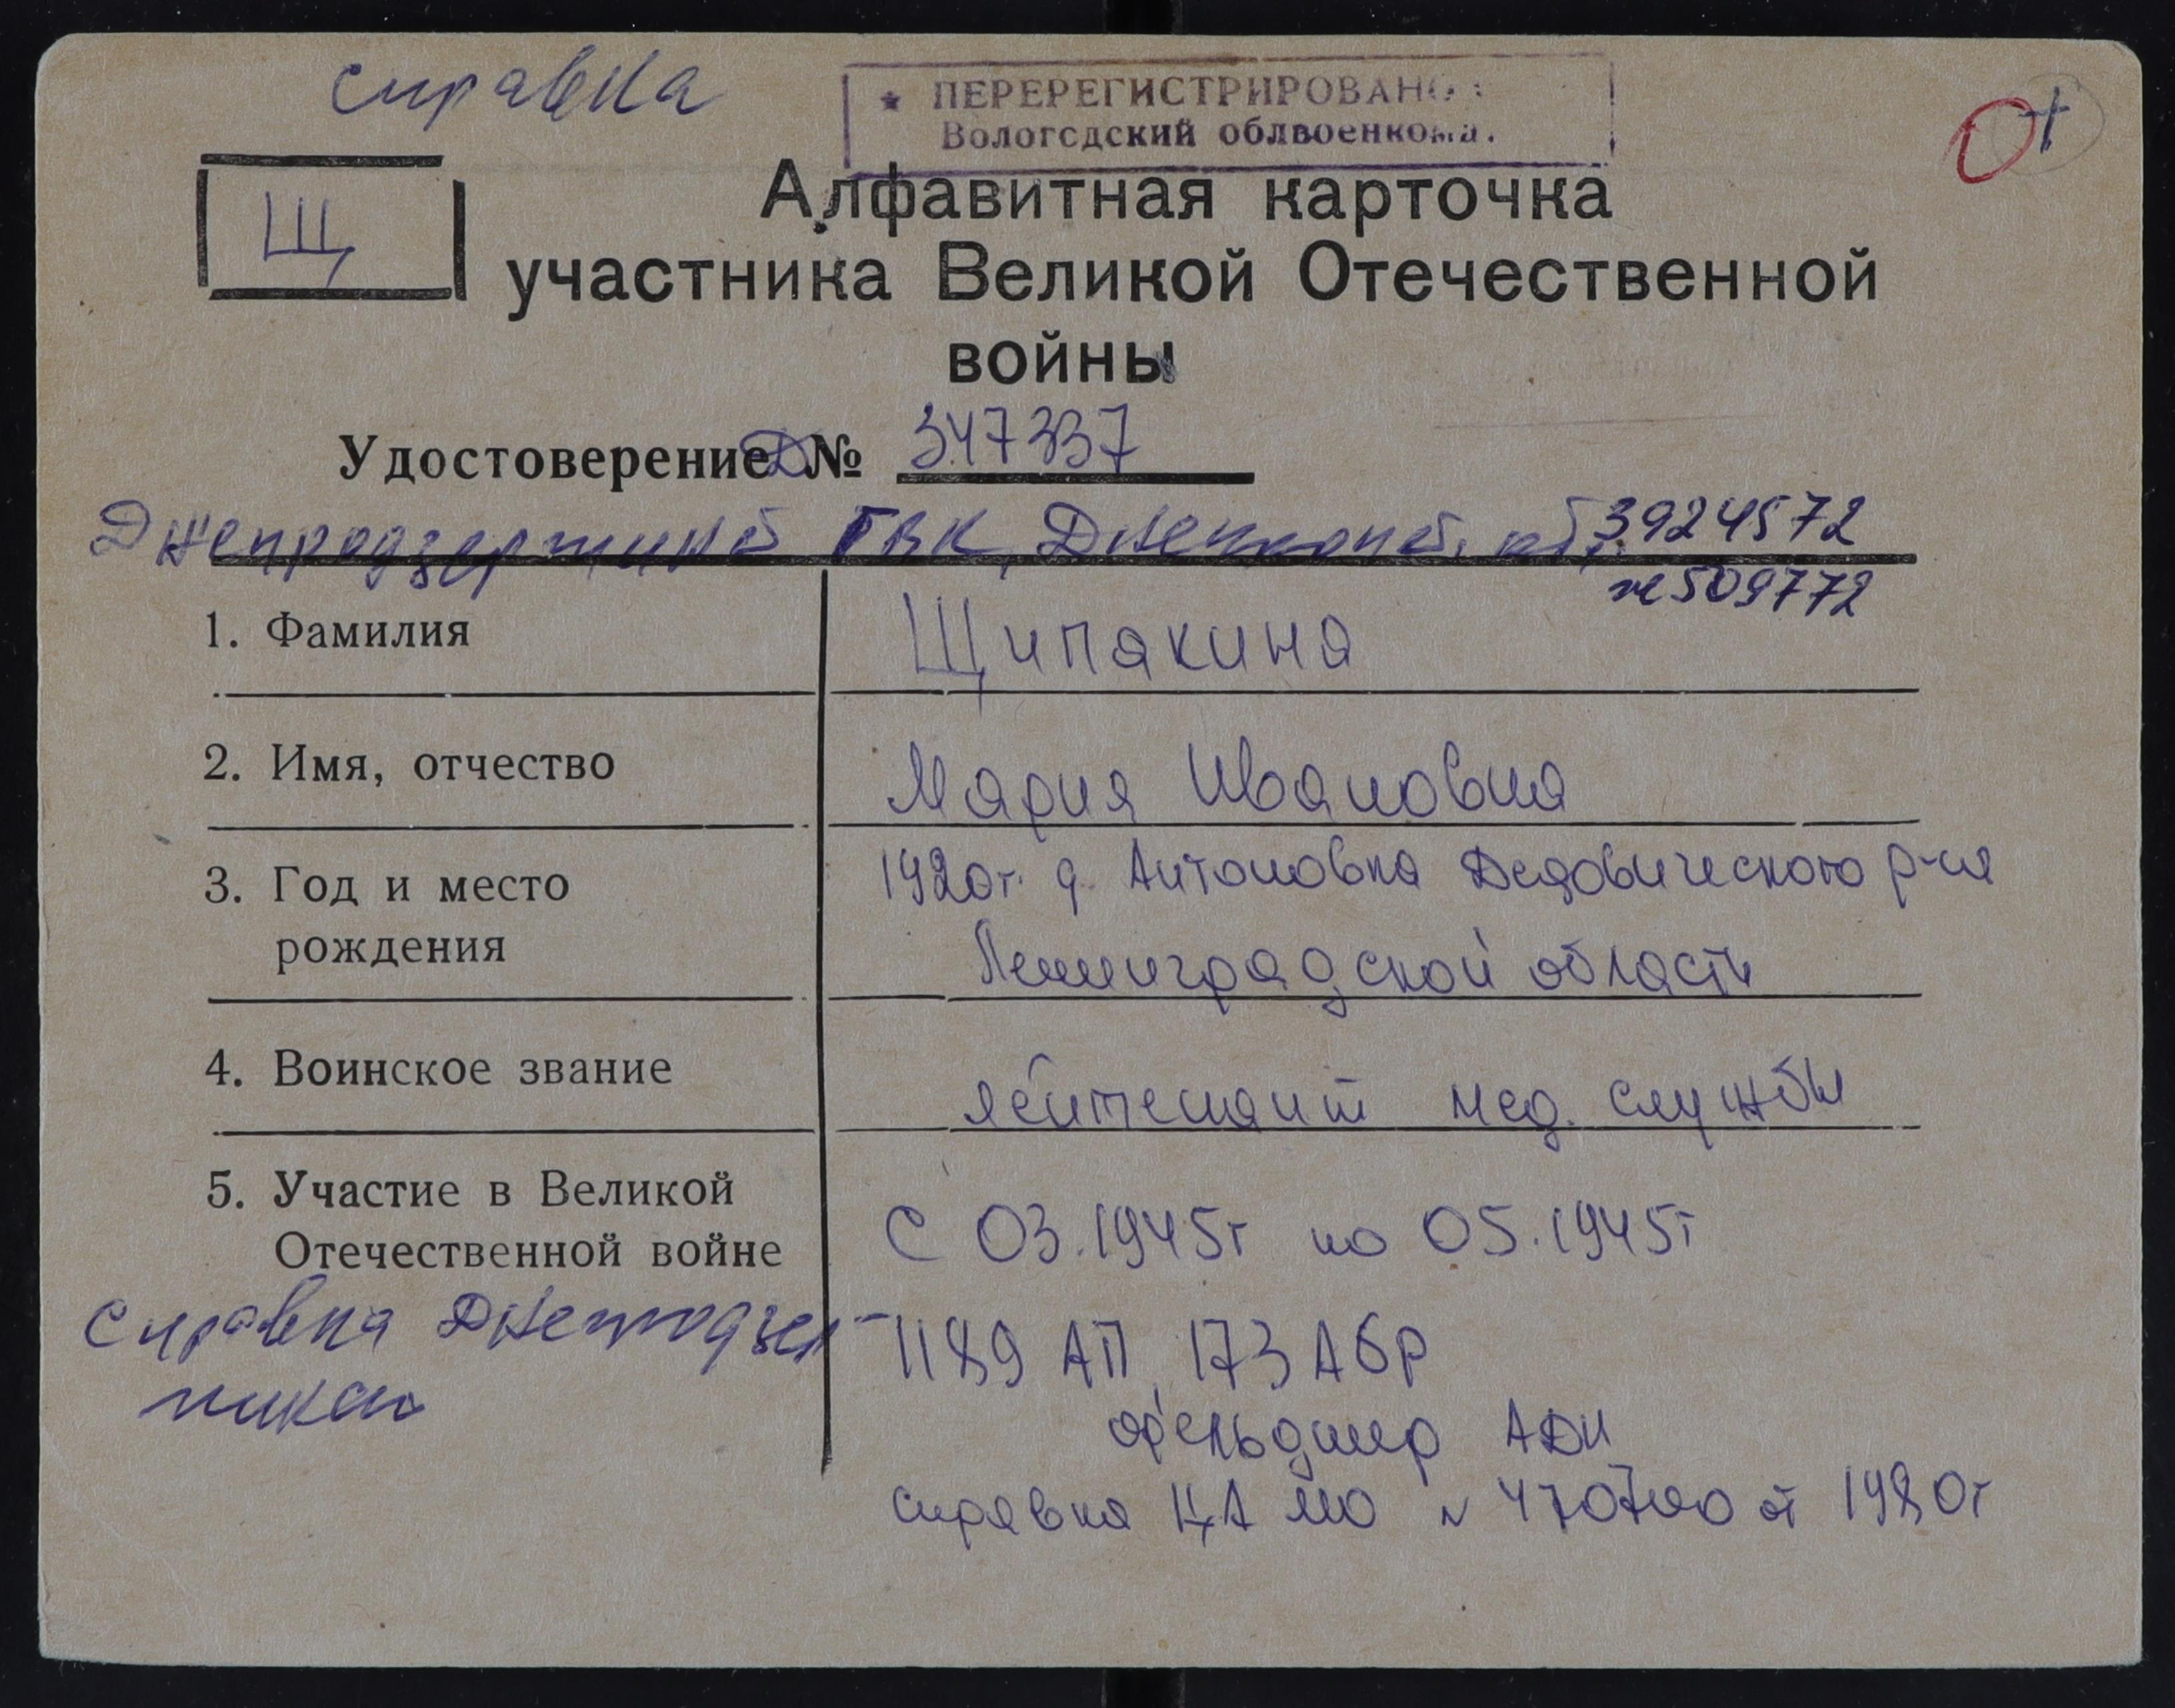 справка
★ ПЕРЕРЕГИСТРИРОВАНО
Вологодский облвоенкома.
Щ
Алфавитная карточка
участника Великой Отечественной
войны
Удостоверение Д № 347337
Днепродзержинск ГВК, Днепроп. обл. 3924572
509772
1. Фамилия Щипакина
2. Имя, отчество Мария Ивановна
3. Год и место 1920г. д. Антоновка Дедовического р-на
рождения Ленинградской области
4. Воинское звание лейтенант мед. службы
5. Участие в Великой
Отечественной войне С 03.1945г по 05.1945г
справка Днепродзер- 1189 АП, 173 АБр
фельдшер АДН
справка ЦА МО № от 1980г